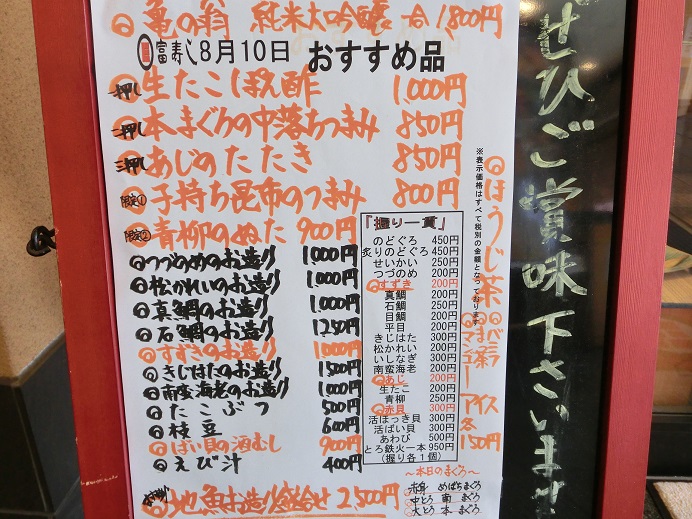 亀の翁 純米大吟醸 一合 1,800円
富寿し 8月10日 おすすめ品
一押し 生たこぽん酢 1,000円
二押し 本まぐろの中落ちつまみ 850円
三押し あじのたたき 850円
限定① 子持ち昆布のつまみ 800円
限定② 青柳のぬた 900円
つづのめのお造り 1,000円
松かれいのお造り 1,000円
真鯛のお造り 1,000円
石鯛のお造り 1,250円
すずきのお造り 1,000円
きじはたのお造り 1,500円
南蛮海老のお造り 1,000円
たこぶつ 500円
枝豆 600円
ばい貝の酒むし 900円
えび汁 400円
地魚お造り盛合せ 2,500円
『握り一貫』
のどぐろ 450円
炙りのどぐろ 450円
せいかい 250円
つづのめ 200円
すずき 200円
真鯛 200円
石鯛 250円
目鯛 200円
平目 200円
きじはた 300円
松かれい 200円
いしなぎ 300円
南蛮海老 200円
あじ 200円
生たこ 200円
青柳 250円
赤貝 300円
活ほっき貝 300円
活ばい貝 300円
あわび 500円
とろ鉄火一本 950円
(握り各1個)
※表示価格はすべて税別の金額となっております
ほうじ茶
バニラ
抹茶
アイス
各150円
〜本日のまぐろ〜
赤身 めばちまぐろ
中とろ 南まぐろ
大とろ 本まぐろ
ぜひご賞味下さいませ